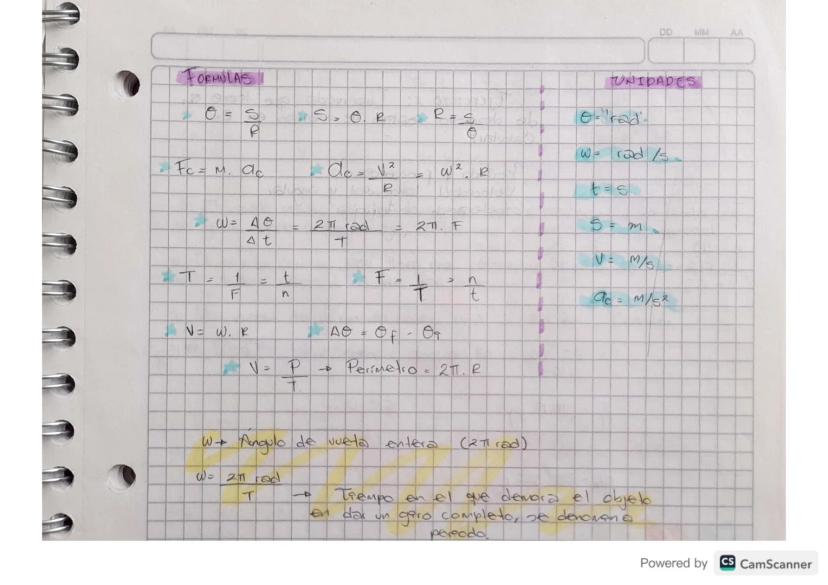 DD MM AA
FORMULAS
θ = S/R   S = θ. R   R = S/θ
Fc = M. ac   ac = V²/R = ω². R
ω = Δθ/Δt = 2π rad/T = 2π. F
T = 1/F = t/n   F = 1/T = n/t
V = ω. R   Δθ = θf - θi
V = P/T → Perímetro = 2π. R
UNIDADES
θ = "rad"
ω = rad/s
t = s
S = m
V = M/s
ac = M/s²
ω → Ángulo de vuelta entera (2π rad)
ω = 2π rad/T → Tiempo en el que demora el objeto
en dar un giro completo, se denomina
periodo.
Powered by CS CamScanner